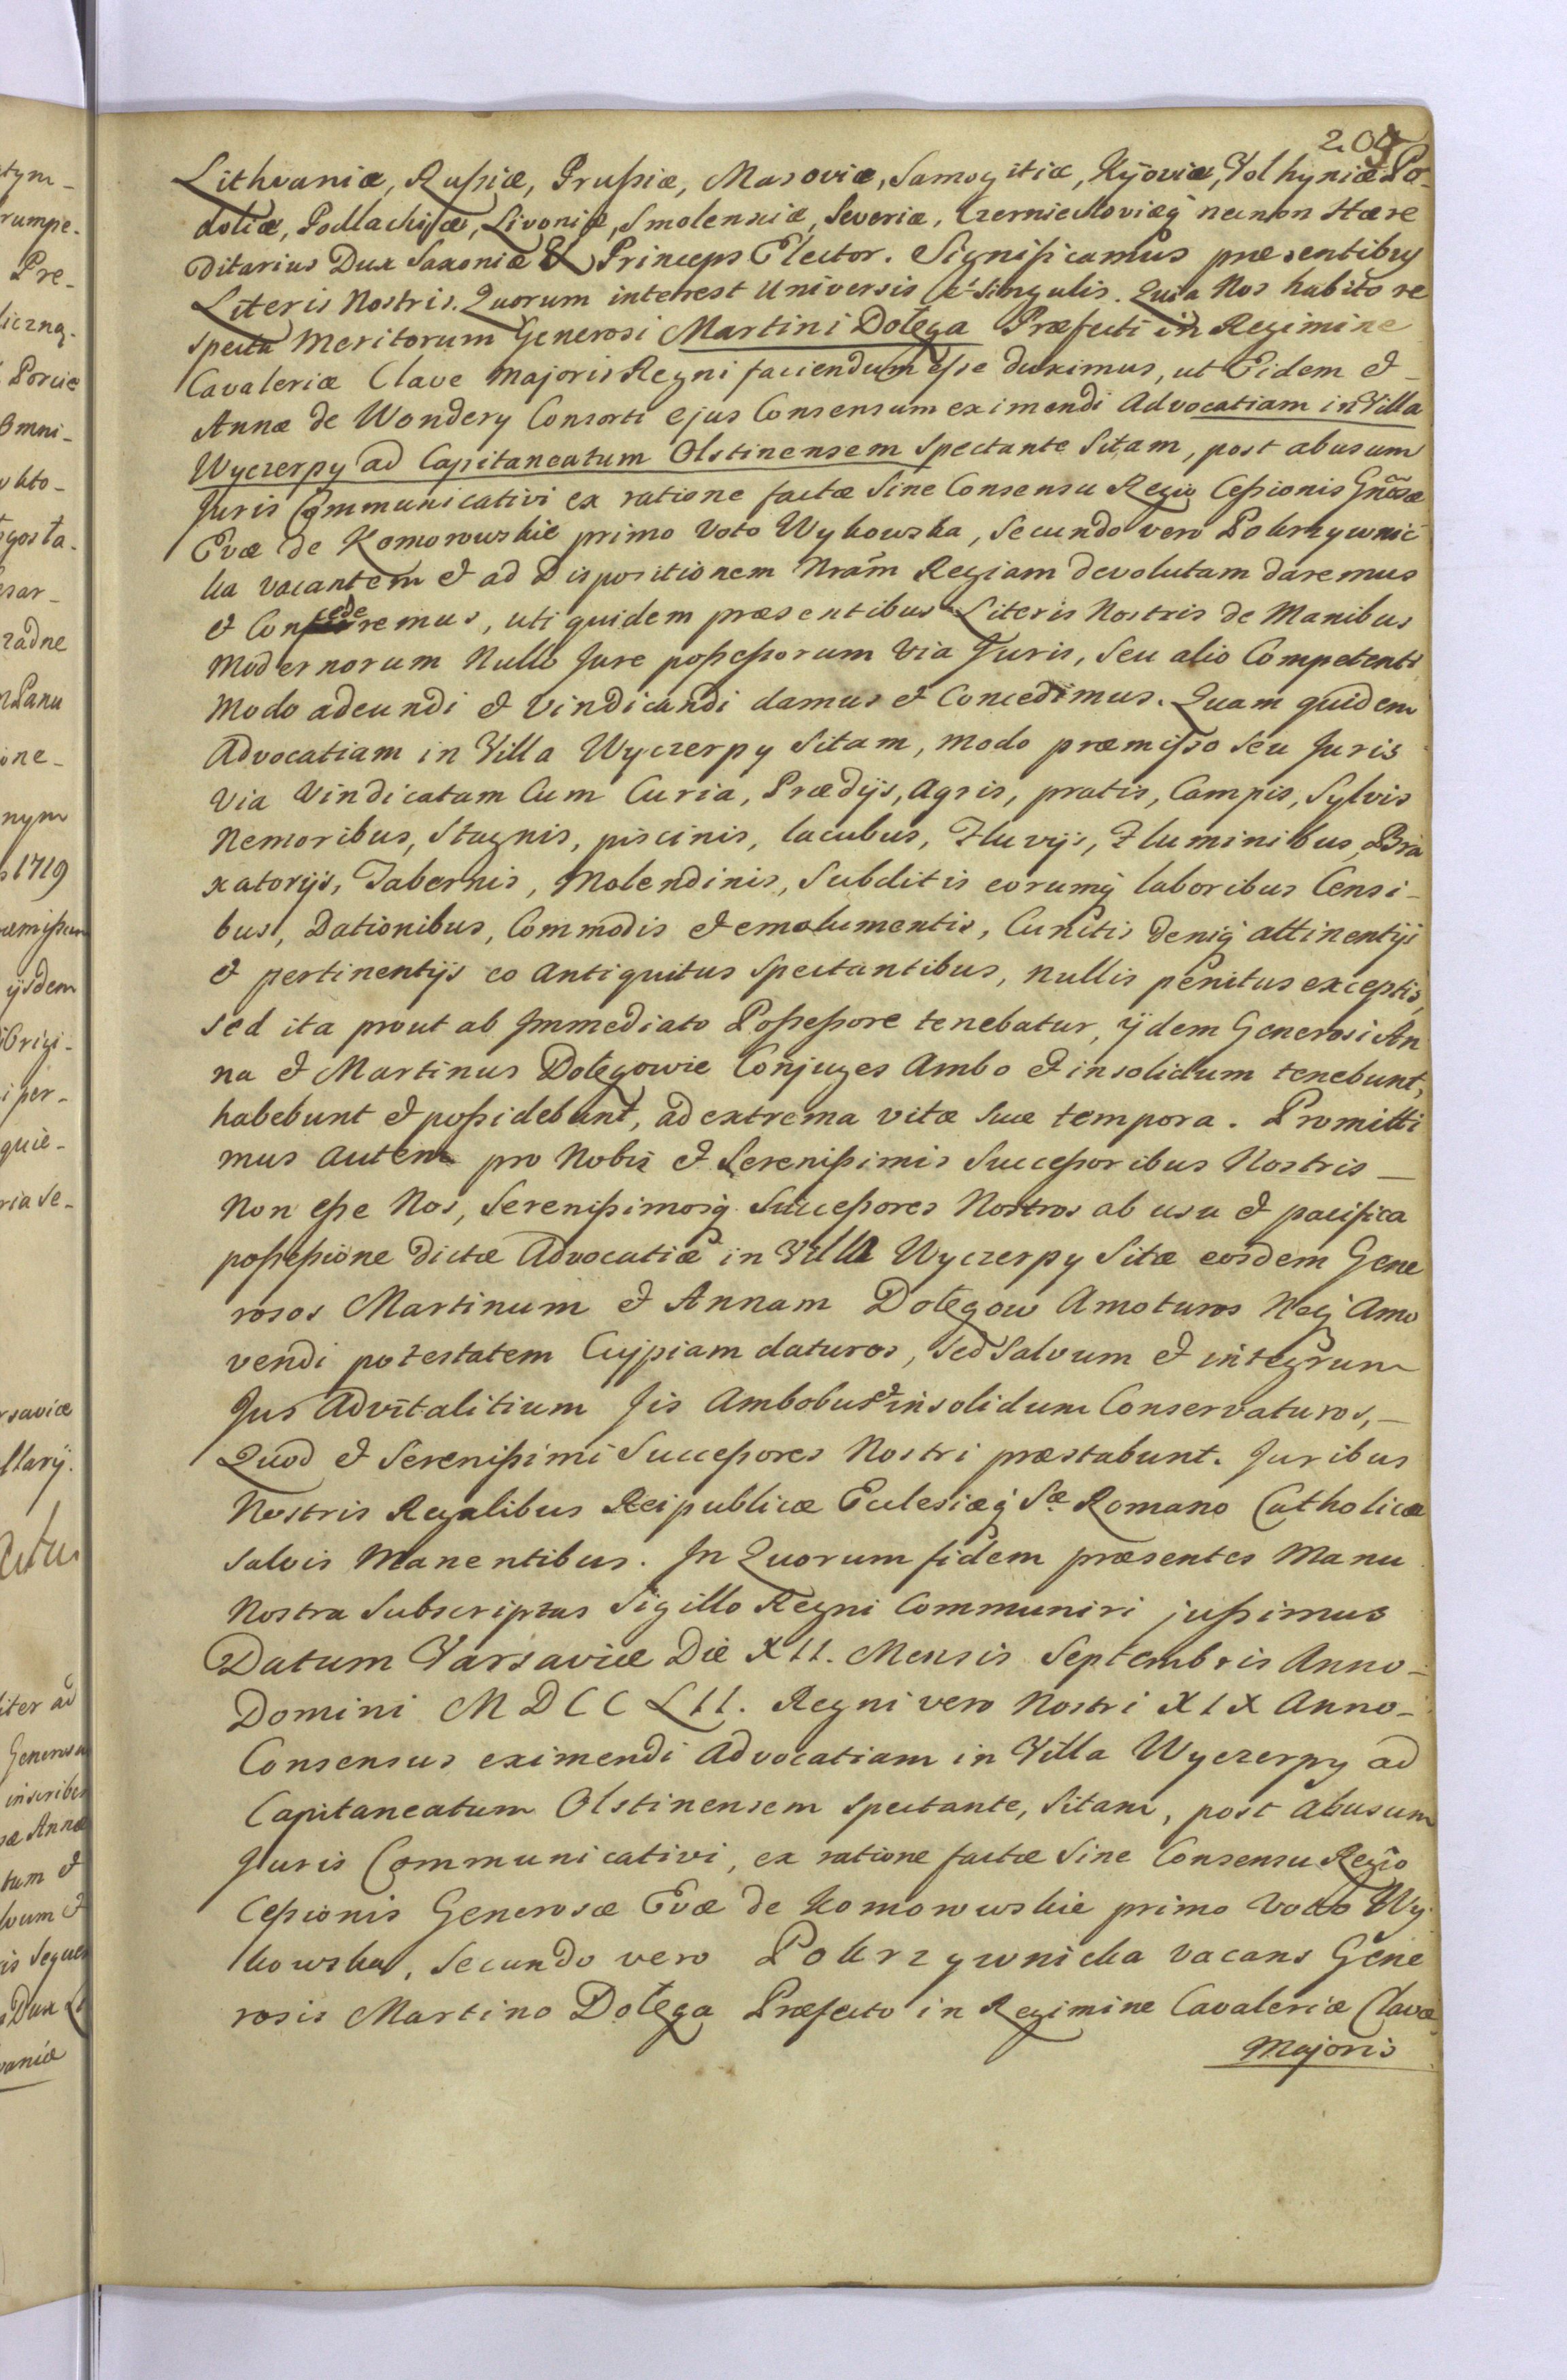 209
Lithvaniæ, Rußiæ, Prußiæ, Masoviæ, Samogitiæ, Kijoviæ, Volhyniæ Po-
doliæ, Podlachiæ, Livoniæ, Smolensciæ, Severiæ, Czerniechoviæq̃ necnon Hære
ditarius Dux Saxoniæ & Princeps Elector. Significamus præsentibus
Literis Nostris. Quorum interest Universis et Singulis. Quia Nos habito re
spectu Meritorum Generosi Martini Dołęga Præfecti in Regimine
Cavaleriæ Clavæ Majoris Regni faciendum eße duximus, ut Eidem et
Annæ de Wondery Consorti ejus Consensum eximendi Advocatiam in Villa
Wyczerpy ad Capitaneatum Olstinensem Spectante Sitam, post abusum
Juris Communicativi ex ratione factæ Sine Consensu Regio Ceßionis Gñosæ
Evæ de Komorowskie primo Voto Wykowska, Secundo vero Pokrzywnic
ka vacantem et ad Dispositionem Nrãm Regiam devolutam daremus
et Concederemus, uti quidem præsentibus Literis Nostris de Manibus
Modernorum Nullo Jure poßeßorum Via Juris, Seu alio Competenti
Modo adeundi et Vindicandi damus et Concedimus. Quam quidem
Advocatiam in Villa Wyczerpy Sitam, modo præmißo Seu Juris
Via Vindicatam Cum Curia, Prædijs, Agris, pratis, Campis, Sylvis
Nemoribus, Stagnis, piscinis, lacubus, Fluvijs, Fluminibus, Bra
xatorijs, Tabernis, Molendinis, Subditis eorumq̃ laboribus Censi-
bus, Dationibus, Commodis et emolumentis, Cunctis deniq̃ attinentijs
et pertinentijs eo Antiquitus Spectantibus, nullis penitus exceptis,
sed ita prout ab Immediato Poßeßore tenebatur, ijdem Generosi An
na et Martinus Dołęgowie Conjuges Ambo et insolidum tenebunt,
habebunt et poßidebunt, ad extrema vitæ Suæ tempora. Promitti
mus autem pro Nobis et Serenißimis Succeßoribus Nostris _
Non eße Nos, Serenißimosq̃ Succeßores Nostros ab usu et pacifica
poßeßione dictæ Advocatiæ in Villa Wyczerpy Sitæ eosdem Gene
rosos Martinum et Annam Dołęgow Amoturos Neq̃ Amo
vendi potestatem Cujpiam daturos, Sed Salvum et integrum
Jus Advitalitium Iis Ambobus et insolidum Conservaturos, _
Quod et Serenißimi Succeßores Nostri præstabunt. Juribus
Nostris Regalibus Reipublicæ Eclesiæq̃ Sæ Romano Catholicæ
Salvis Manentibus. In Quorum fidem præsentes Manu
Nostra Subscriptas Sigillo Regni Communiri jußimus
Datum Varsaviæ Die XII. Mensis Septembris Anno-
Domini MDCCLII. Regni vero Nostri XIX Anno-
Consensus eximendi Advocatiam in Villa Wyczerpy ad
Capitaneatum Olstinensem Spectante, Sitam, post Abusum
Juris Communicativi, ex ratione factæ Sine Consensu Regio
Ceßionis Generosæ Evæ de Komorowskie primo Votto Wy
kowska, Secundo vero Pokrzywnicka vacans Gene
rosis Martino Dołęga Præfecto in Regimine Cavaleriæ Clavæ
Majoris